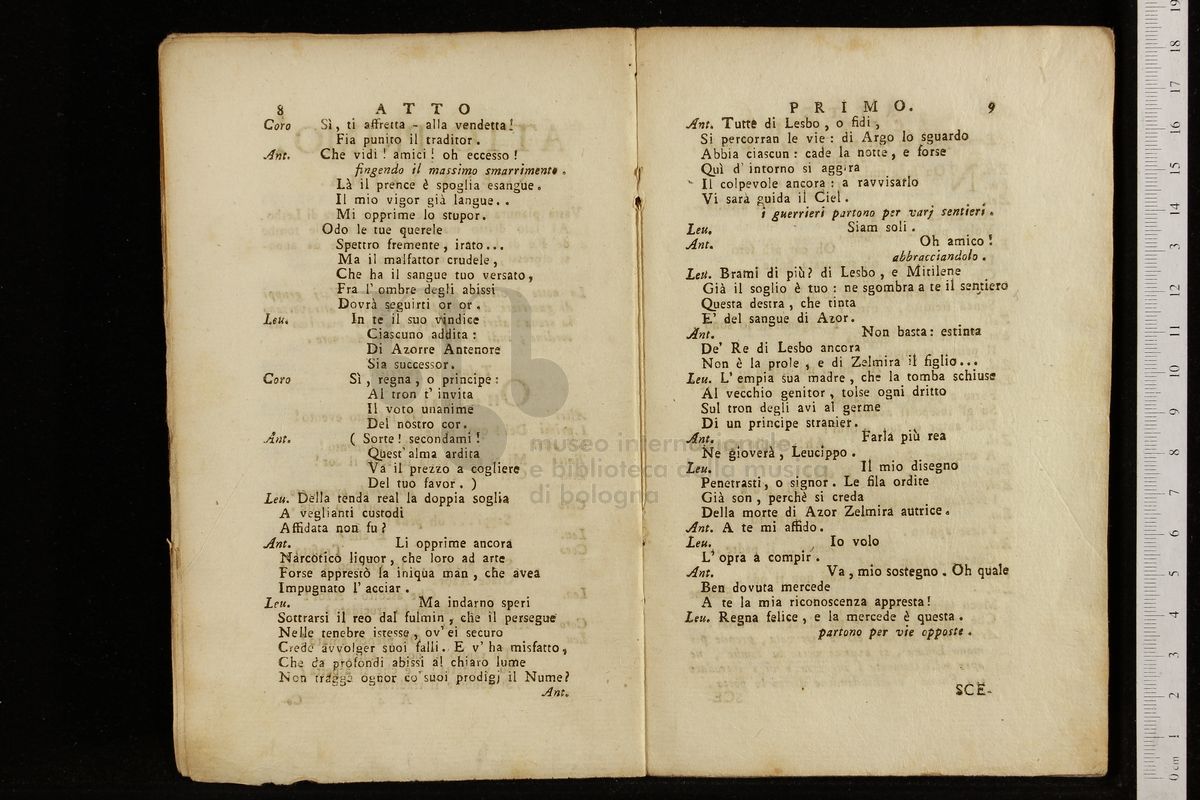 8 ATTO
Coro Sì, ti affretta - alla vendetta!
Fia punito il traditor.
Ant. Che vidi! amici! oh eccesso!
fingendo il massimo smarrimento.
Là il prence è spoglia esangue.
Il mio vigor già langue..
Mi opprime lo stupor.
Odo le tue querele
Spettro fremente, irato...
Ma il malfattor crudele,
Che ha il sangue tuo versato,
Fra l' ombre degli abissi
Dovrà seguirti or or.
Leu. In te il suo vindice
Ciascuno addita:
Di Azorre Antenore
Sia successor.
Coro Sì, regna, o principe:
Al tron t' invita
Il voto unanime
Del nostro cor.
Ant. ( Sorte! secondami!
Quest' alma ardita
Va il prezzo a cogliere
Del tuo favor. )
Leu. Della tenda real la doppia soglia
A veglianti custodi
Affidata non fu?
Ant. Li opprime ancora
Narcotico liquor, che loro ad arte
Forse apprestò la iniqua man, che avea
Impugnato l' acciar.
Leu. Ma indarno speri
Sottrarsi il reo dal fulmin, che il persegue
Nelle tenebre istesse, ov' ei securo
Crede avvolger suoi falli. E v' ha misfatto,
Che da profondi abissi al chiaro lume
Non tragga ognor co' suoi prodigj il Nume?
Ant.
PRIMO. 9
Ant. Tutte di Lesbo, o fidi,
Si percorran le vie: di Argo lo sguardo
Abbia ciascun: cade la notte, e forse
Quì d' intorno si aggira
Il colpevole ancora: a ravvisarlo
Vi sarà guida il Ciel.
i guerrieri partono per varj sentieri.
Leu. Siam soli.
Ant. Oh amico!
abbracciandolo.
Leu. Brami di più? di Lesbo, e Mitilene
Già il soglio è tuo: ne sgombra a te il sentiero
Questa destra, che tinta
E' del sangue di Azor.
Ant. Non basta: estinta
De' Re di Lesbo ancora
Non è la prole, e di Zelmira il figlio...
Leu. L' empia sua madre, che la tomba schiuse
Al vecchio genitor, tolse ogni dritto
Sul tron degli avi al germe
Di un principe stranier.
Ant. Farla più rea
Ne gioverà, Leucippo.
Leu. Il mio disegno
Penetrasti, o signor. Le fila ordite
Già son, perchè si creda
Della morte di Azor Zelmira autrice.
Ant. A te mi affido.
Leu. Io volo
L' opra a compir.
Ant. Va, mio sostegno. Oh quale
Ben dovuta mercede
A te la mia riconoscenza appresta!
Leu. Regna felice, e la mercede è questa.
partono per vie opposte.
SCE-
museo internazionale
e biblioteca della musica
di bologna
0 cm 1 2 3 4 5 6 7 8 9 10 11 12 13 14 15 16 17 18 19